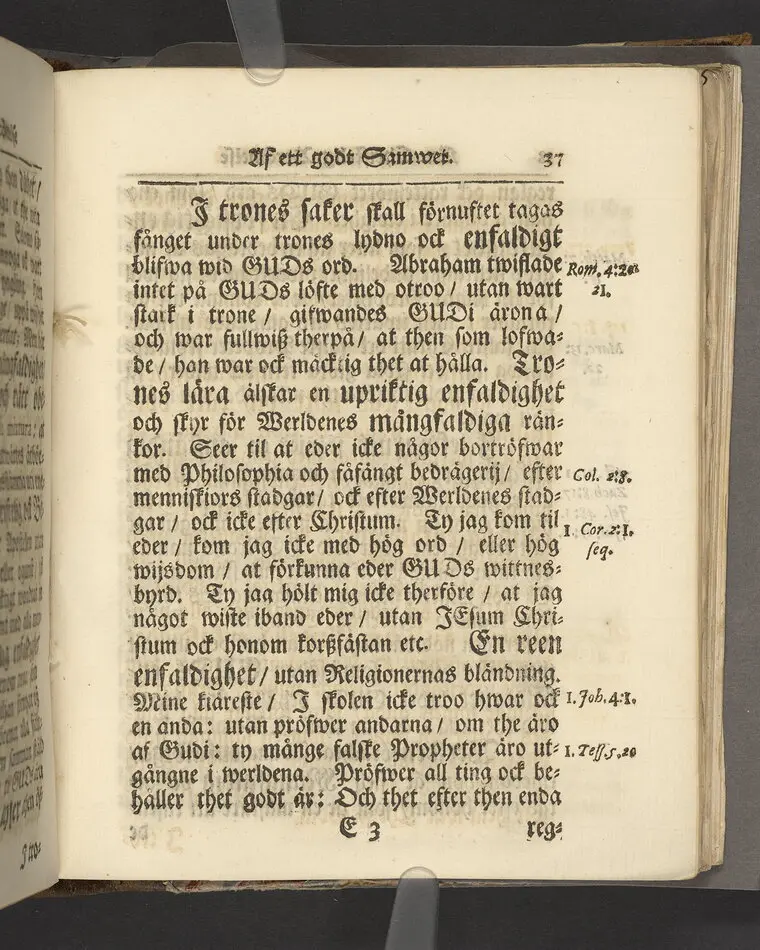 Af ett godt Samwet. 37
I trones saker skall förnuftet tagas
fånget under trones lydno ock enfaldigt
blifwa wid GUDs ord. Abraham twiflade Rom. 4:20
intet på GUDs löfte med otroo / utan wart 21.
stark i trone / gifwandes GUDi ärona /
och war fullwiß therpå / at then som lofwa-
de / han war ock mächtig thet at hålla. Tro-
nes lära älskar en upriktig enfaldighet
och skyr för Werldenes mångfaldiga rän-
kor. Seer til at eder icke någor bortröfwar
med Philosophia och fåfängt bedrägerij / efter Col. 2:8.
menniskiors stadgar / ock efter Werldenes stad-
gar / ock icke efter Christum. Ty jag kom til 1. Cor. 2:1.
eder / kom jag icke med hög ord / eller hög seq.
wijsdom / at förkunna eder GUDs wittnes-
byrd. Ty jag hölt mig icke therföre / at jag
något wiste iband eder / utan JEsum Chri-
stum ock honom korßfästan etc. En reen
enfaldighet / utan Religionernas bländning.
Mine kiäreste / I skolen icke troo hwar ock 1. Joh. 4:1.
en anda: utan pröfwer andarna / om the äro
af Gudi: ty månge falske Propheter äro ut- 1. Tess. 5. 20
gångne i werldena. Pröfwer all ting ock be-
håller thet godt är: Och thet efter then enda
E 3 reg-